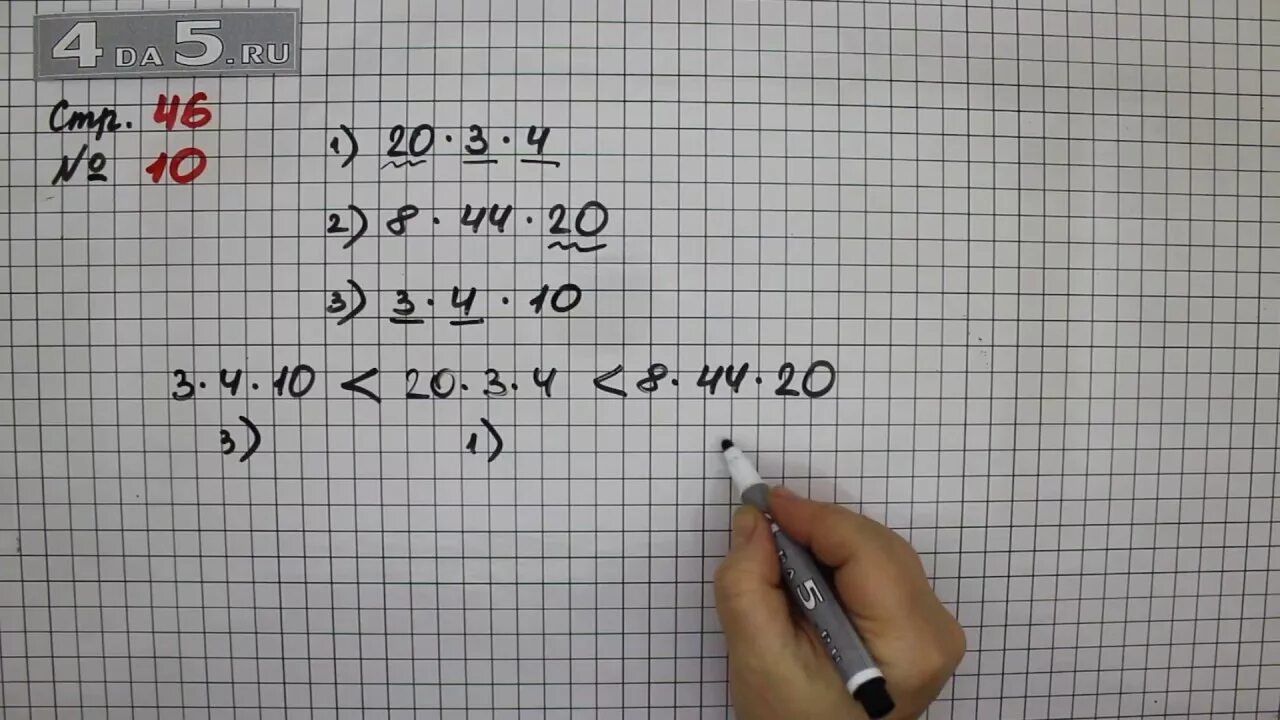 4DA5.RU
Стр. 46
№ 10
1) 20 · 3 · 4
2) 8 · 44 · 20
3) 3 · 4 · 10
3 · 4 · 10 < 20 · 3 · 4 < 8 · 44 · 20
3) 1)